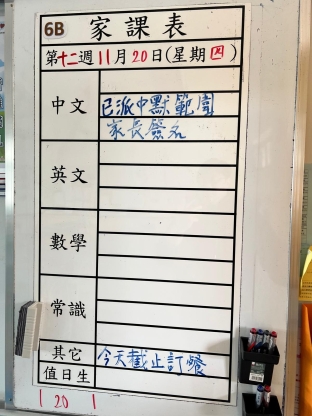 6B 家課表
第十二週11月20日(星期四)
中文 已派中默範圍
家長簽名
英文
數學
常識
其它 今天截止訂餐
值日生
1 20 1